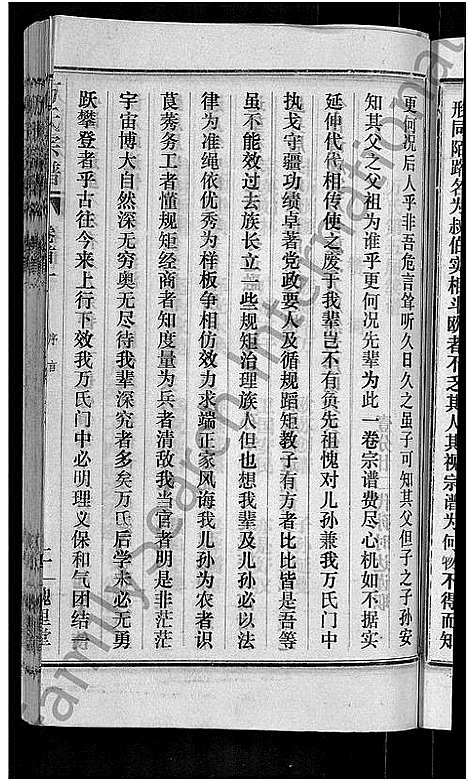 形同陌路名为叔伯实相斗殴者不乏其人其视宗谱为何物不得而知
更何况后人乎非吾危言耸听久日久之虽子可知其父但子之子孙安
知其父之父祖为谁乎更何况先辈为此一卷宗谱费尽心机如不据实
延伸代代相传使之废于我辈岂不有负先祖愧对儿孙兼我万氏门中
执戈守疆功绩卓著党政要人及循规蹈矩教子有方者比比皆是吾等
虽不能效过去族长立一些规矩治理族人但也想我辈及儿孙必以法
律为准绳依优秀为样板争相仿效力求端正家风诲我儿孙为农者识
莨莠务工者懂规矩经商者知度量为兵者清敌我当官者明是非茫茫
宇宙博大自然深无穷奥无尽待我辈深究者多矣万氏后学未必无勇
跃攀登者乎古往今来上行下效我万氏门中必明理义保和气团结奋
万氏宗谱
卷首一
序言
二
槐里堂
FamilySearch International